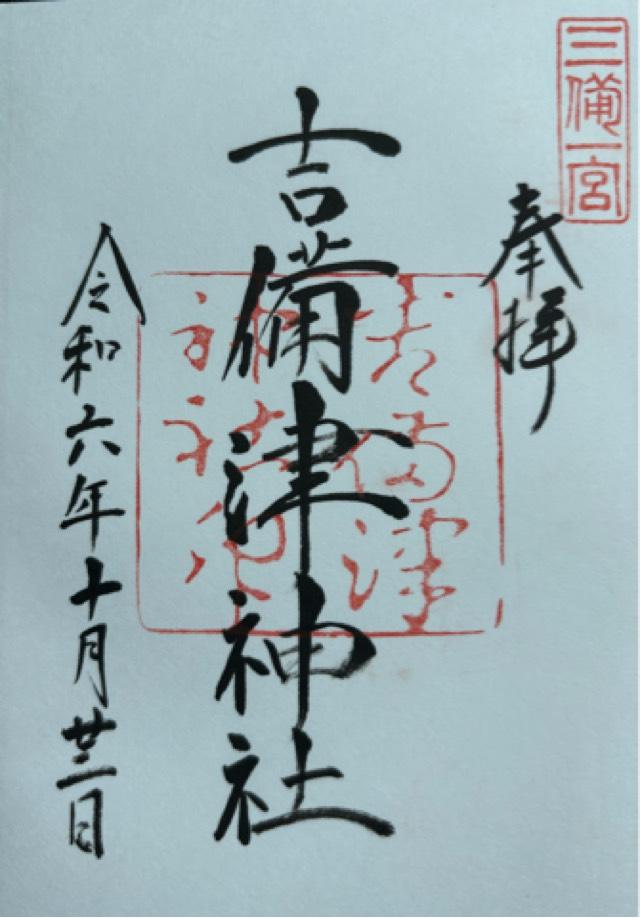 三備一宮
奉拝
吉備津神社
令和六年十月廿二日